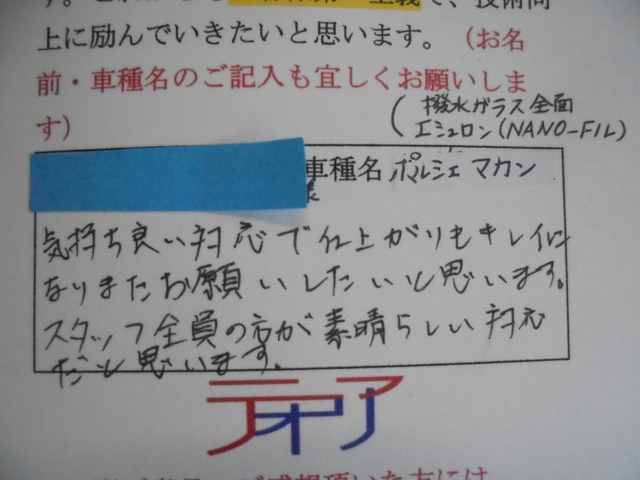 上に励んでいきたいと思います。（お名
前・車種名のご記入も宜しくお願いしま
す）
（撥水ガラス全面
エシュロン（NANO-FIL）
車種名 ポルシェ マカン
様
気持ち良い対応で仕上がりもキレイに
なりまたお願いしたいと思います。
スタッフ全員の方が素晴らしい対応
だと思います。
テオリア